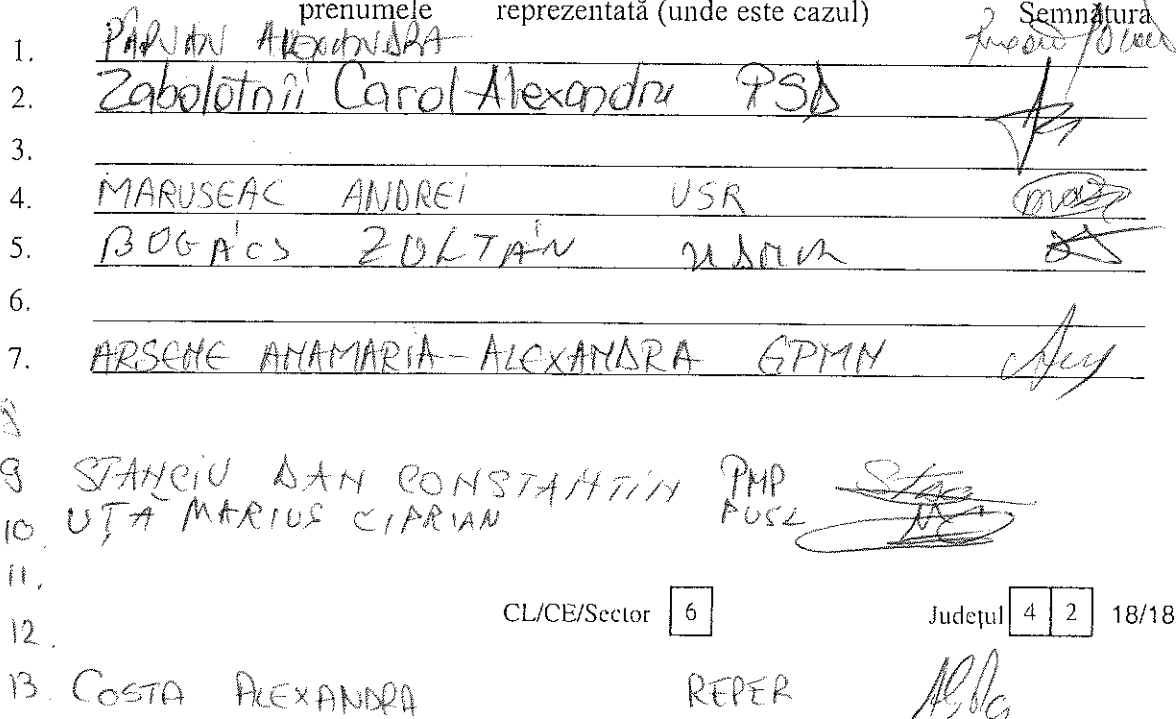 prenumele reprezentată (unde este cazul) Semnătura
1. PÂRVAN ALEXANDRA
2. Zabolotnii Carol-Alexandru PSD
3.
4. MARUSEAC ANDREI USR
5. BOGÁCS ZOLTÁN UDMR
6.
7. ARSENE ANAMARIA-ALEXANDRA GPMN
8
9 STANCIU DAN CONSTANTIN PMP
10 UȚĂ MARIUS CIPRIAN PUSL
11.
CL/CE/Sector 6 Județul 4 2 18/18
12.
13. COSTA ALEXANDRA REPER